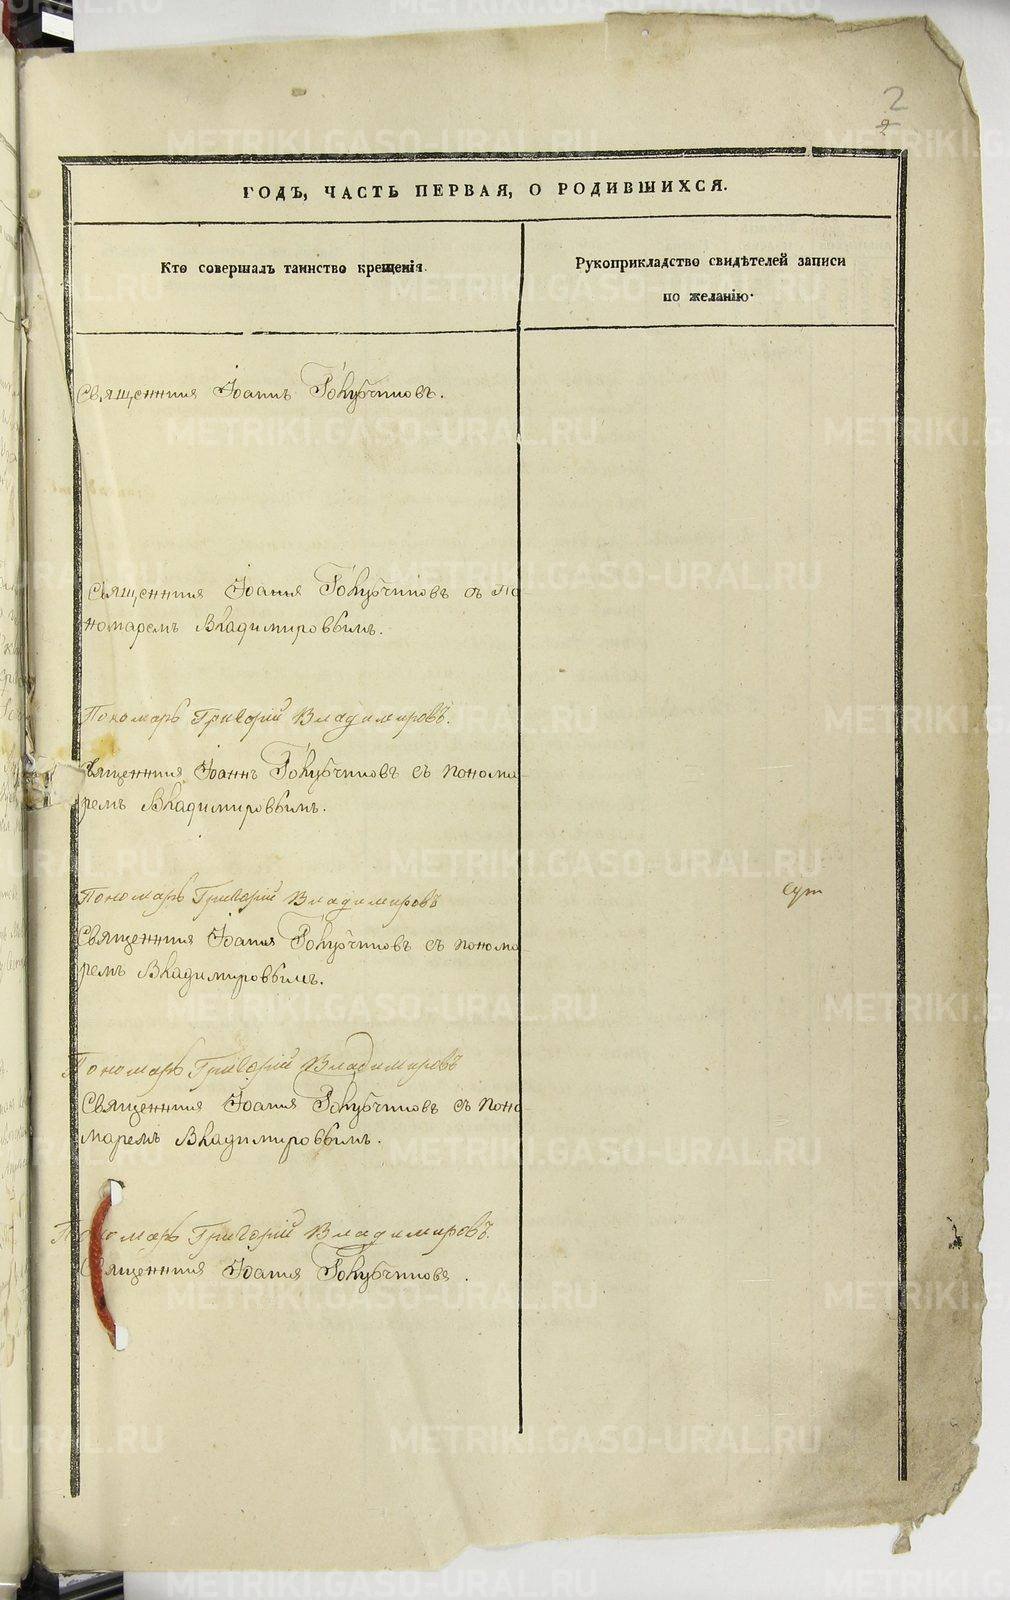 2
ГОДЪ, ЧАСТЬ ПЕРВАЯ, О РОДИВШИХСЯ.
Кто совершалъ таинство крещенія.
Рукоприкладство свидѣтелей записи
по желанію.
Священник Іоаннъ Голубчиковъ.
Священник Іоанн Голубчиковъ съ По
номаремъ Владимировымъ.
Пономарь Григорій Владимировъ.
Священник Іоаннъ Голубчиковъ съ понома
ремъ Владимировымъ.
Пономарь Григорій Владимировъ
Священник Іоанн Голубчиковъ съ понома
ремъ Владимировымъ.
Пономарь Григорій Владимировъ
Священник Іоанн Голубчиковъ съ поно
маремъ Владимировымъ.
Пономарь Григорій Владимировъ.
Священник Іоанн Голубчиковъ.
METRIKI.GASO-URAL.RU